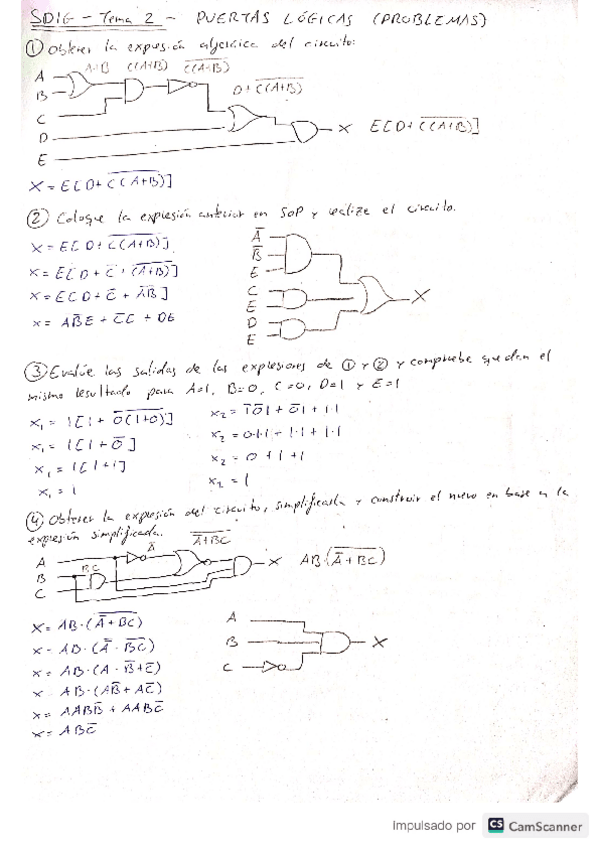 SDIG - Tema 2 - PUERTAS LÓGICAS (PROBLEMAS)
① Obtener la expresión algebraica del circuito:
A+B C(A+B) \overline{C(A+B)}
A
B
D+\overline{C(A+B)}
C
D
E
X E[D+\overline{C(A+B)}]
X = E[D+\overline{C(A+B)}]
② Coloque la expresión anterior en SOP y realize el circuito.
X = E[D+\overline{C(A+B)}]
X = E[D+\overline{C}+\overline{(A+B)}]
X = E[D+\overline{C}+\overline{A}\overline{B}]
X = \overline{A}\overline{B}E + \overline{C}E + DE
\overline{A}
\overline{B}
E
C
E
D
E
X
③ Evalúe las salidas de las expresiones de ① y ② y compruebe que dan el
mismo resultado para A=1, B=0, C=0, D=1 y E=1
X₁ = 1[1+\overline{0(1+0)}]
X₁ = 1[1+\overline{0}]
X₁ = 1[1+1]
X₁ = 1
X₂ = \overline{1}\overline{0}1 + \overline{0}1 + 1·1
X₂ = 0·1·1 + 1·1 + 1·1
X₂ = 0+1+1
X₂ = 1
④ Obtener la expresión del circuito, simplificarla y construir el nuevo en base a la
expresión simplificada.
\overline{\overline{A}+BC}
A
\overline{A}
B
BC
C
X AB·(\overline{\overline{A}+BC})
X = AB·(\overline{\overline{A}+BC})
X = AB·(\overline{\overline{A}}·\overline{BC})
X = AB·(A·\overline{B}+\overline{C})
X = AB·(A\overline{B}+A\overline{C})
X = AAB\overline{B}+AAB\overline{C}
X = AB\overline{C}
A
B
C
X
Impulsado por CS CamScanner